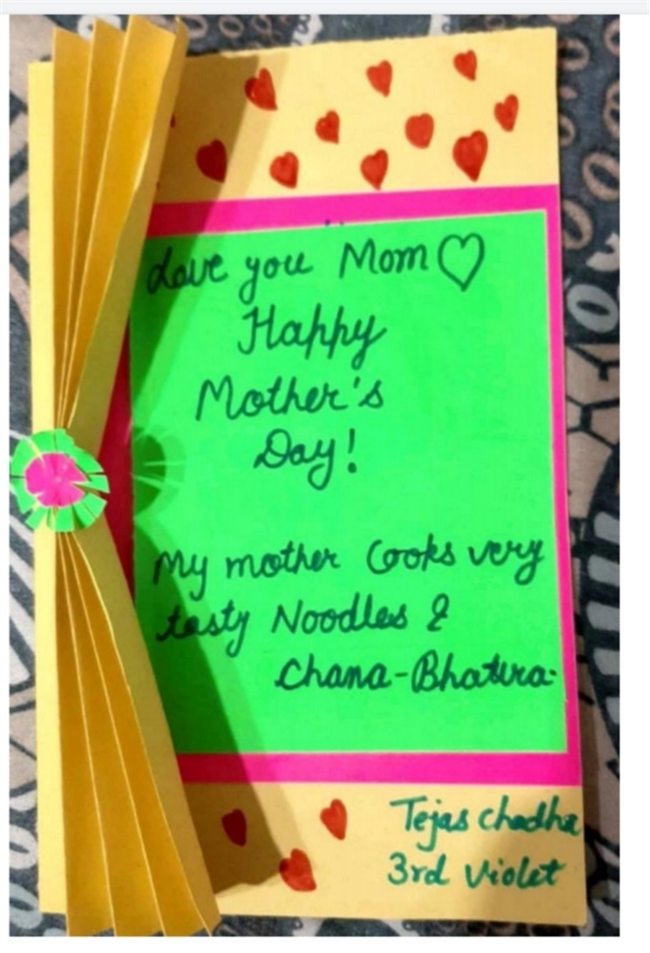 Love you Mom♡
Happy
Mother's
Day!
My mother Cooks very
tasty Noodles &
Chana-Bhatura
Tejas Chadha
3rd Violet